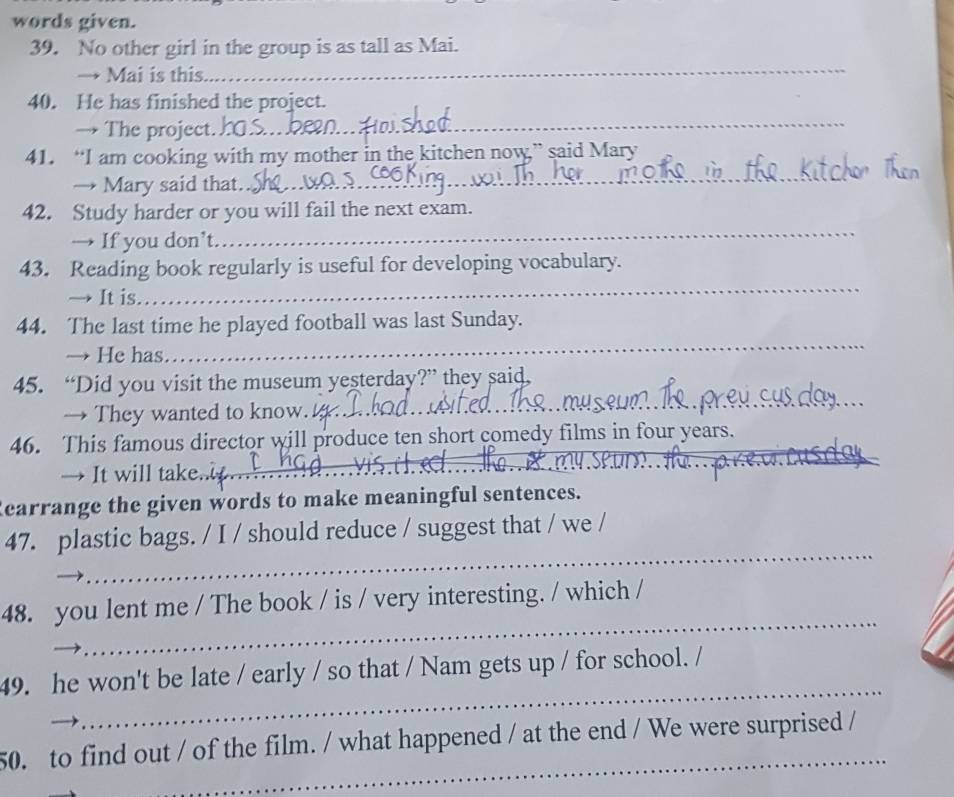 words given.
39. No other girl in the group is as tall as Mai.
→ Mai is this
40. He has finished the project.
→ The project. has been finished
41. “I am cooking with my mother in the kitchen now,” said Mary
→ Mary said that. She was cooking with her mothe in the kitchen then
42. Study harder or you will fail the next exam.
→ If you don't
43. Reading book regularly is useful for developing vocabulary.
→ It is
44. The last time he played football was last Sunday.
→ He has
45. “Did you visit the museum yesterday?” they said,
→ They wanted to know. if I had visited the museum the previcus day
46. This famous director will produce ten short comedy films in four years.
→ It will take if I had visited the museum the previcusday
Rearrange the given words to make meaningful sentences.
47. plastic bags. / I / should reduce / suggest that / we /
→
48. you lent me / The book / is / very interesting. / which /
→
49. he won't be late / early / so that / Nam gets up / for school. /
→
50. to find out / of the film. / what happened / at the end / We were surprised /
→